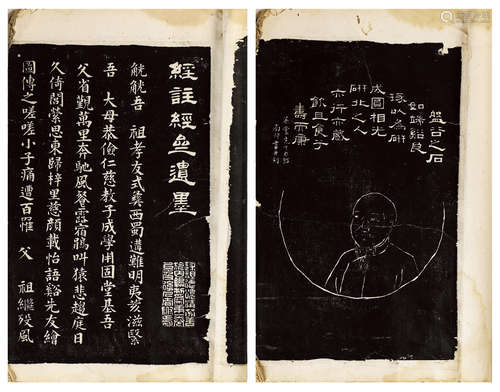 經註經齋遺墨
觥觥吾 祖孝友式冀西蜀遭難明夷亥滋緊
吾 大母恭儉仁慈教子成學用固堂基吾
父省觀萬里奔馳風餐露宿鵑叫猿悲趨庭日
久倚閭縈思東歸梓里慈顏載怡語谿先友繪
圖傳之嗟嗟小子痛遭百罹 父 祖繼歿風
盤谷之石
如端谿良
琢以為研
成圓相光
研北之人
六行亦臧
飲且食兮
壽而康